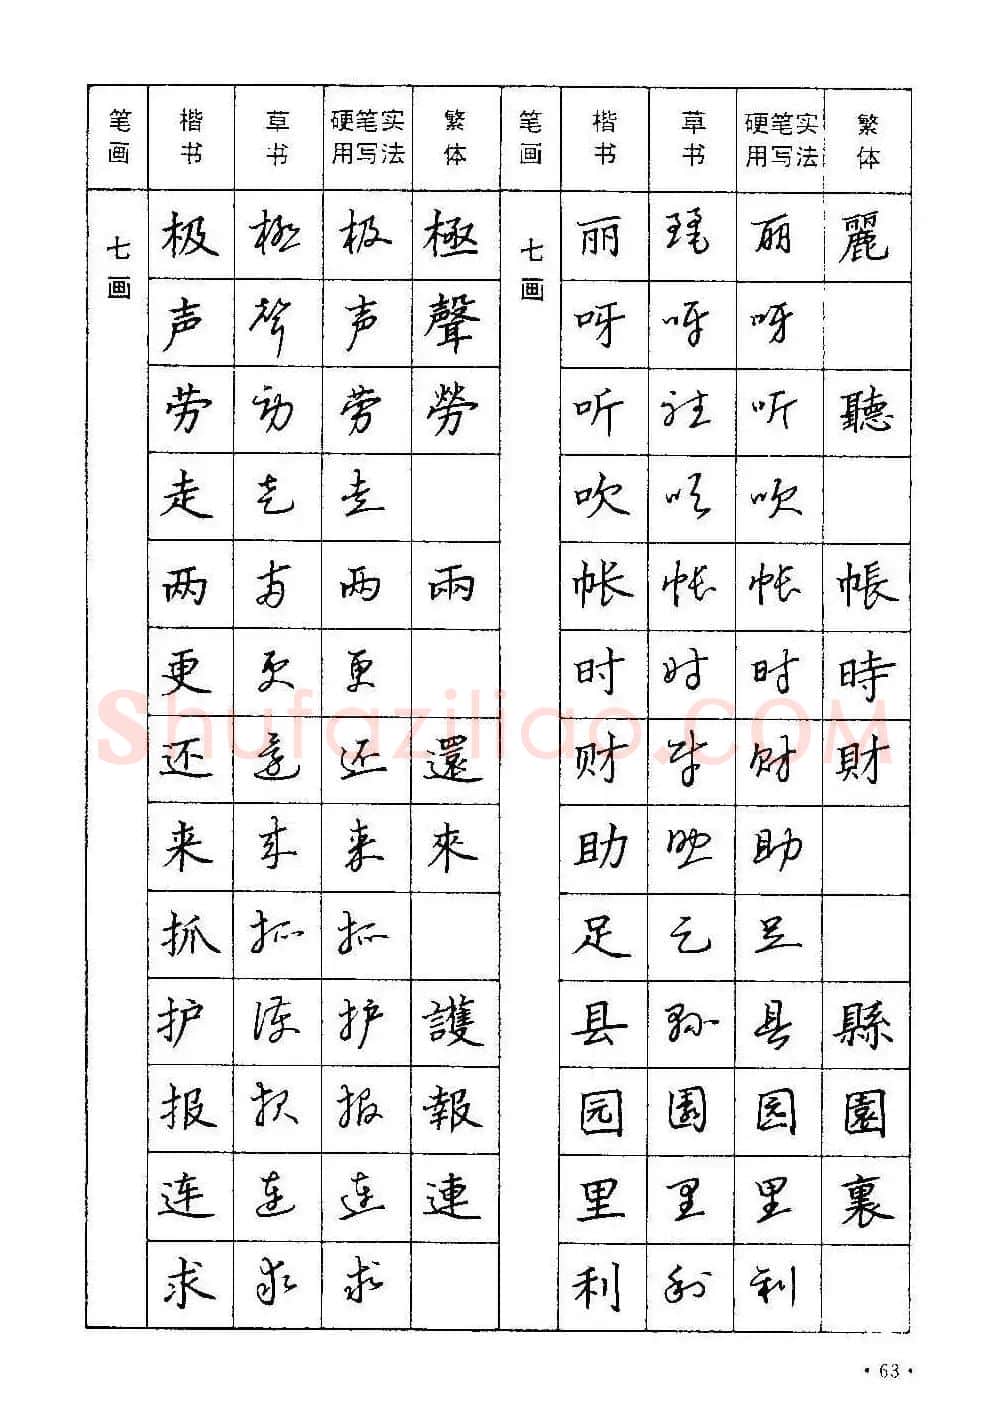 笔画 楷书 草书 硬笔实用写法 繁体 笔画 楷书 草书 硬笔实用写法 繁体
七画 极 极 极 極 七画 丽 丽 丽 麗
声 声 声 聲 呀 呀 呀
劳 劳 劳 勞 听 听 听 聽
走 走 走 吹 吹 吹
两 两 两 兩 帐 帐 帐 帳
更 更 更 时 时 时 時
还 还 还 還 财 财 财 財
来 来 来 來 助 助 助
抓 抓 抓 足 足 足
护 护 护 護 县 县 县 縣
报 报 报 報 园 园 园 園
连 连 连 連 里 里 里 裏
求 求 求 利 利 利
Shufaziliao.COM
·63·